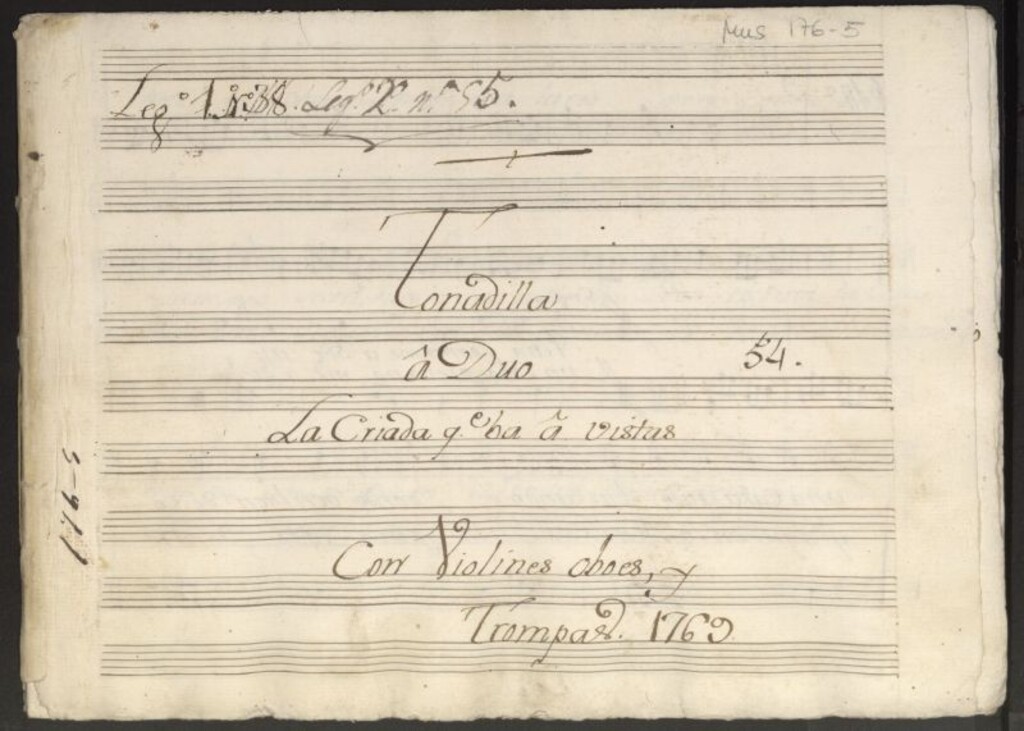 Mus 176-5
Leg.º 1. N.º 38. Leg.º 2.º n.º 55.
Tonadilla
â Duo 54.
La Criada q.e ba â vistas
Con Violines oboes, y
Trompas. 1769
176-5